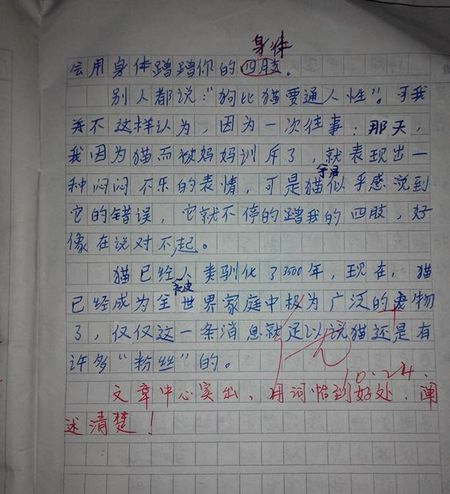 身体
会用身体蹭蹭你的四肢。
别人都说:“狗比猫要通人性”。可我
我不这样认为,因为一次往事:那天,
我因为猫而被妈妈训斥了,就表现出一
种闷闷不乐的表情,可是猫似乎感说到
它的错误,它就不停的蹭我的四肢,好
像在说对不起。
猫已经人类驯化了3500年,现在,猫
已经成为全世界家庭中极为广泛的宠物
了,仅仅这一条消息就足以说猫还是有
许多“粉丝”的。
10.24.
文章中心突出,用词恰到好处,阐
述清楚!